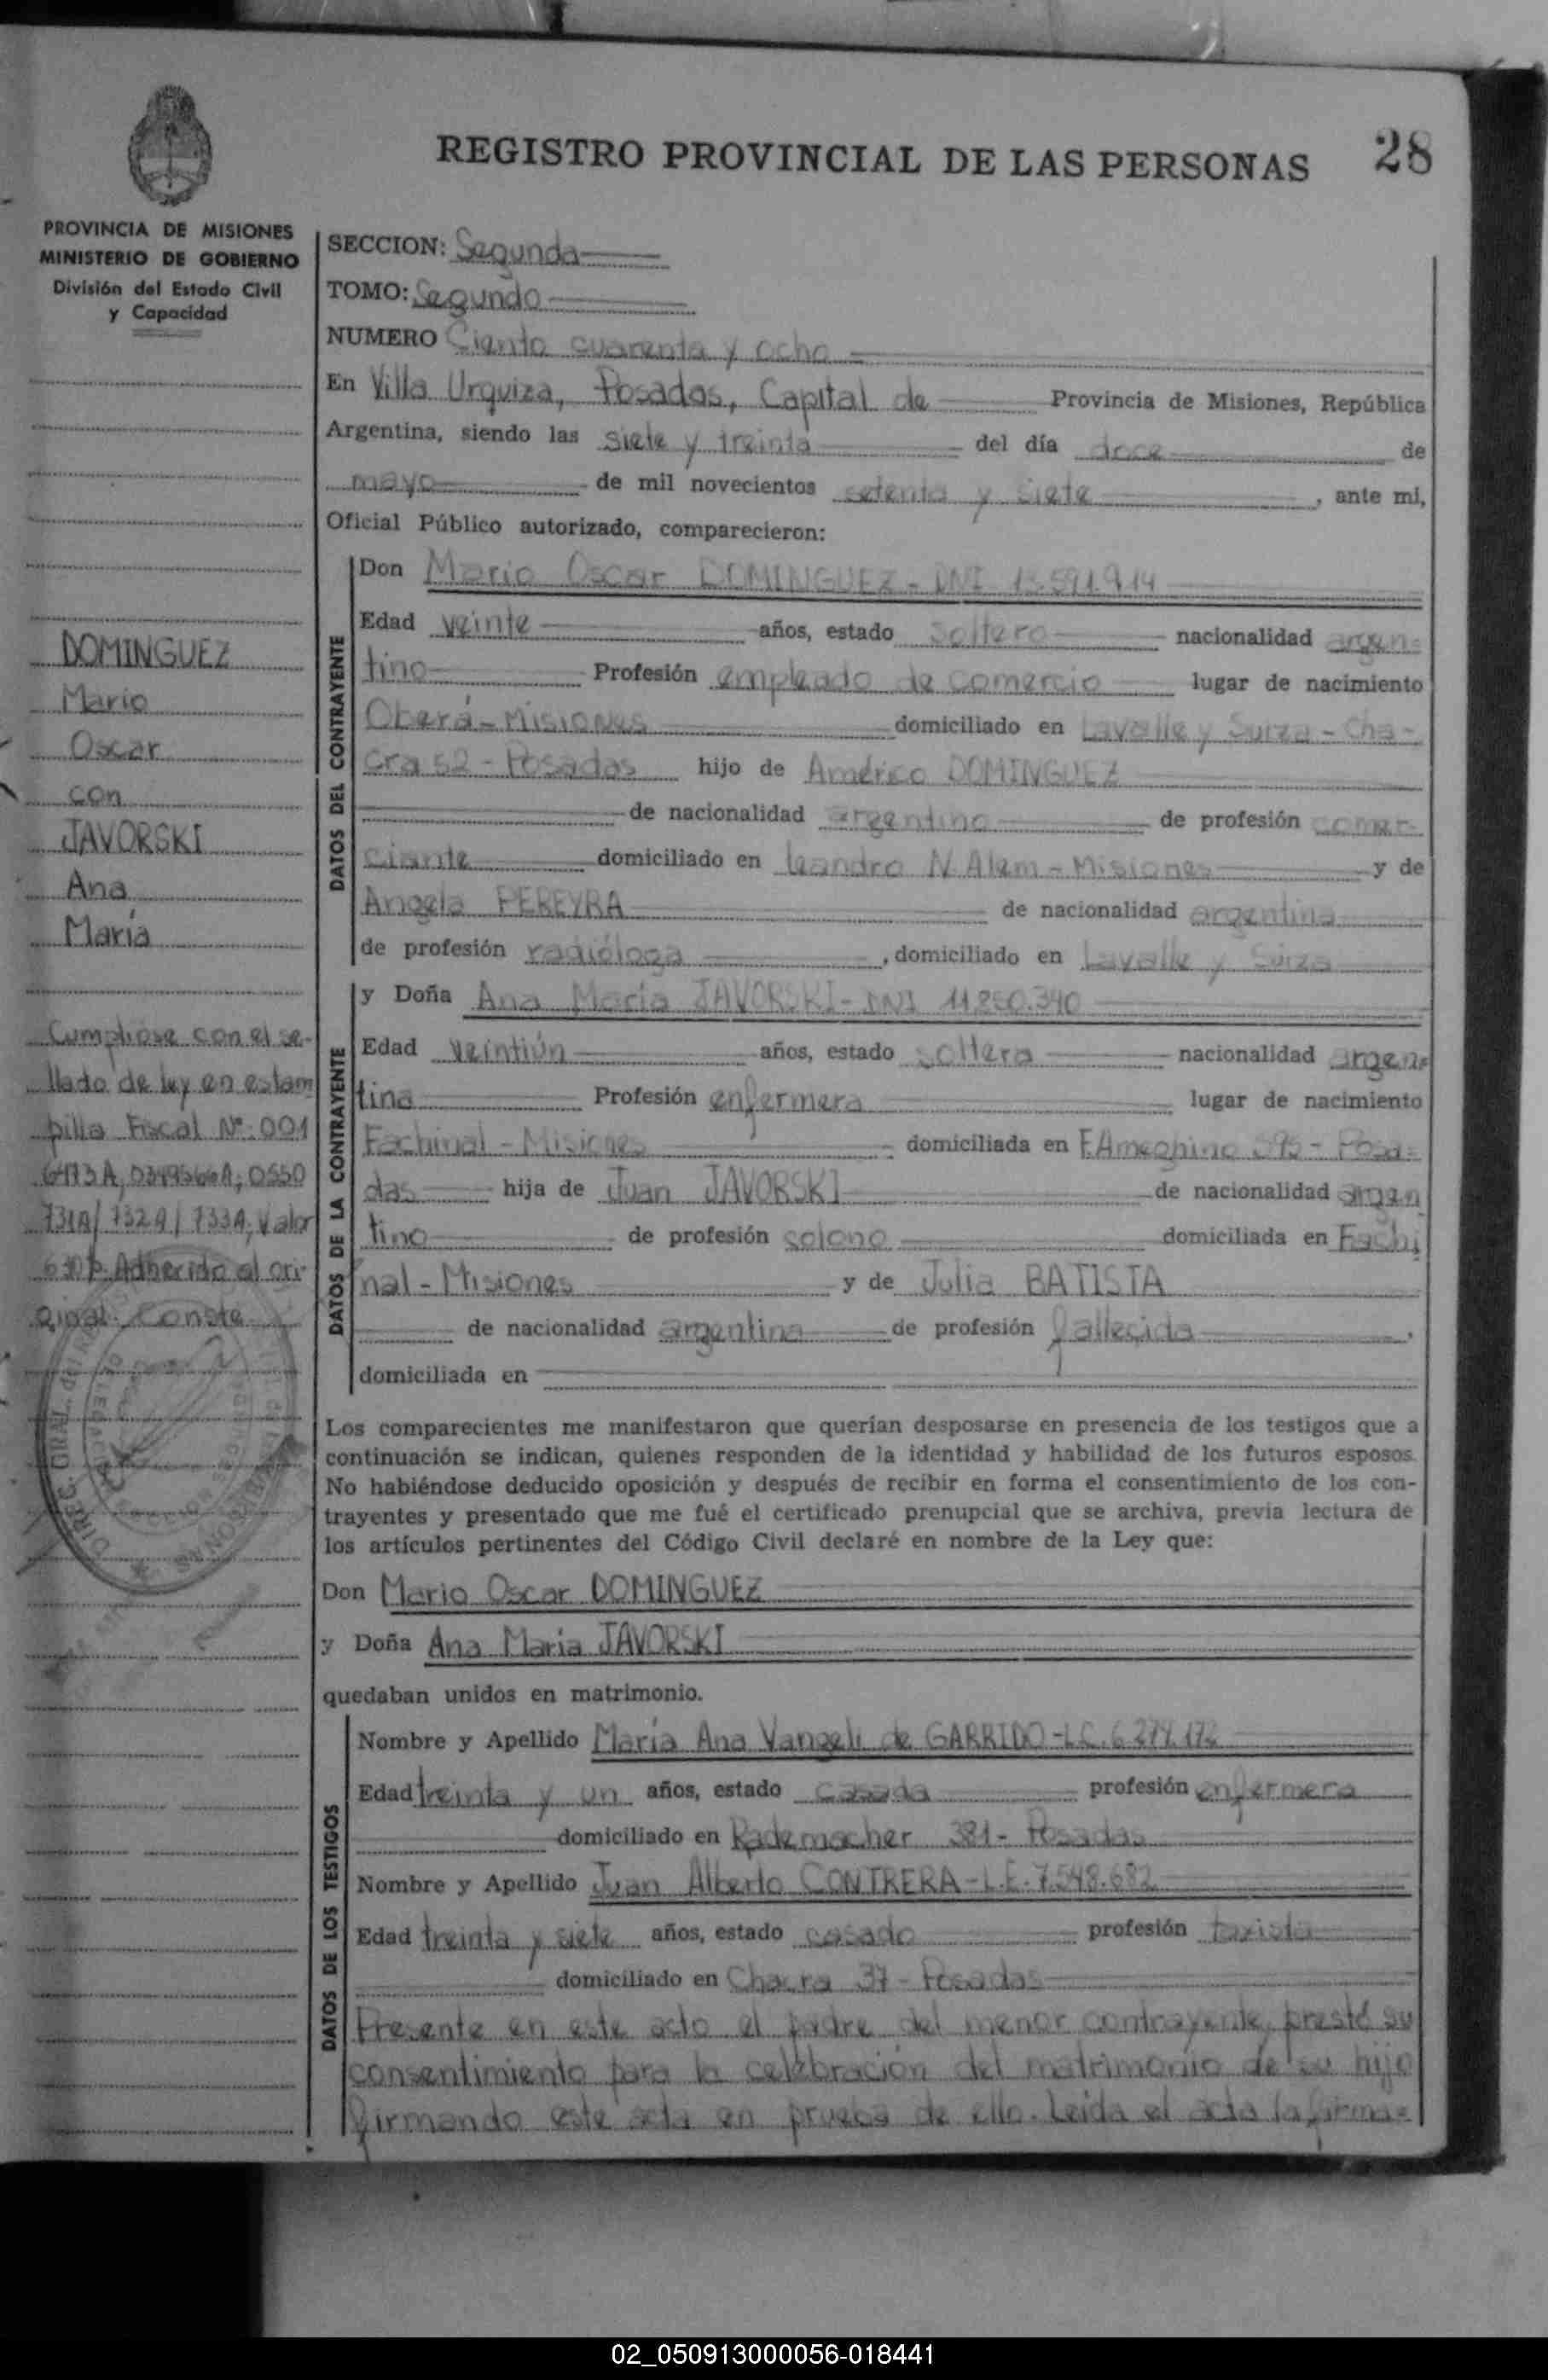 REGISTRO PROVINCIAL DE LAS PERSONAS 28
PROVINCIA DE MISIONES
MINISTERIO DE GOBIERNO
División del Estado Civil
y Capacidad
DOMINGUEZ
Mario
Oscar
con
JAVORSKI
Ana
María
Cumpliose con el se-
llado de ley en estam
pilla Fiscal Nº 001
731A/732A/733A; Valor
Adherido al ori-
ginal. Conste
SECCION: Segunda
TOMO: Segundo
NUMERO Ciento cuarenta y ocho
En Villa Urquiza, Posadas, Capital de Provincia de Misiones, República
Argentina, siendo las siete y treinta del día doce de
mayo de mil novecientos setenta y siete, ante mi,
Oficial Público autorizado, comparecieron:
DATOS DEL CONTRAYENTE
Don Mario Oscar DOMINGUEZ - DNI 13.591.914
Edad veinte años, estado soltero nacionalidad argen-
tino Profesión empleado de comercio lugar de nacimiento
Oberá - Misiones domiciliado en Lavalle y Suiza - Cha-
cra 52 - Posadas hijo de Américo DOMINGUEZ
de nacionalidad argentino de profesión comer-
ciante domiciliado en Leandro N Alem - Misiones y de
Angela PEREYRA de nacionalidad argentina
de profesión radióloga, domiciliado en Lavalle y Suiza
DATOS DE LA CONTRAYENTE
y Doña Ana María JAVORSKI - DNI 11.850.340
Edad veintiún años, estado soltera nacionalidad argen-
tina Profesión enfermera lugar de nacimiento
Fachinal - Misiones domiciliada en F Ameghino 595 - Posa-
das hija de Juan JAVORSKI de nacionalidad argen
tino de profesión colono domiciliada en Fachi
nal - Misiones y de Julia BATISTA
de nacionalidad argentina de profesión fallecida
domiciliada en
Los comparecientes me manifestaron que querían desposarse en presencia de los testigos que a
continuación se indican, quienes responden de la identidad y habilidad de los futuros esposos.
No habiéndose deducido oposición y después de recibir en forma el consentimiento de los con-
trayentes y presentado que me fué el certificado prenupcial que se archiva, previa lectura de
los artículos pertinentes del Código Civil declaré en nombre de la Ley que:
Don Mario Oscar DOMINGUEZ
y Doña Ana Maria JAVORSKI
quedaban unidos en matrimonio.
DATOS DE LOS TESTIGOS
Nombre y Apellido María Ana Vangeli de GARRIDO - LC.
Edad treinta y un años, estado casada profesión enfermera
domiciliado en Rademacher 381 - Posadas
Nombre y Apellido Juan Alberto CONTRERA - L.E. 7.548.682
Edad treinta y siete años, estado casado profesión taxista
domiciliado en Chacra 37 - Posadas
Presente en este acto el padre del menor contrayente, prestó su
consentimiento para la celebración del matrimonio de su hijo
firmando este acta en prueba de ello. Leida el acta la firma-
02_050913000056-018441